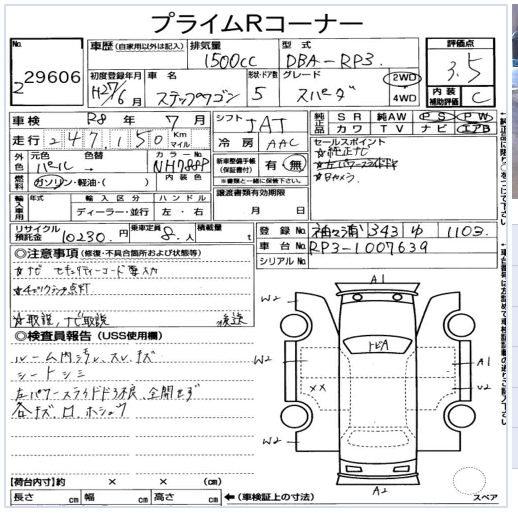 プライムRコーナー
No.
229606
車歴(自家用以外は記入)
排気量
1500cc
型式
DBA-RP3
評価点
3.5
初度登録年月
H27/6月
車名
ステップワゴン
形状・ドア数
5
グレード
スパーダ
2WD
4WD
内装
補助評価
C
車検 R8年 7月
シフト
IAT
純正品
SR 純AW PS PW
カワ TV ナビ エアB
走行 247,150
Km
マイル
冷房
AAC
セールスポイント
☆純正ナビ
☆左パワースライドドア
☆Bカメラ
外色
元色 色替
パール→
カラーNo
NH788P
新車整備手帳
(保証書付)
有・無
※書類と一緒に保管下さい。
燃料
ガソリン・軽油・( )
内装色
譲渡書類有効期限
月 日
輸入車用
年式
輸入区分
ディーラー・並行
ハンドル
左・右
リサイクル
預託金
10230円
乗定員
8人
積載量
t
登録No
343 ゆ 1105
車台No
RP3-1007639
シリアルNo
◎注意事項(修復・不具合箇所および状態等)
☆ナビ セキュリティーコード要入力
☆取説、ナビ取説 後送
◎検査員報告(USS使用欄)
ルーム内汚れ、スレ、キズ
シートシミ
左パワースライドドア不良、全開せず
各キズ、凹、ホショウ
A1
W2
W2
W2
TBA
XX
A1
U2
A2
スペア
【荷台内寸】約 × × (cm)
長さ cm 幅 cm 高さ cm
←(車検証上の寸法)